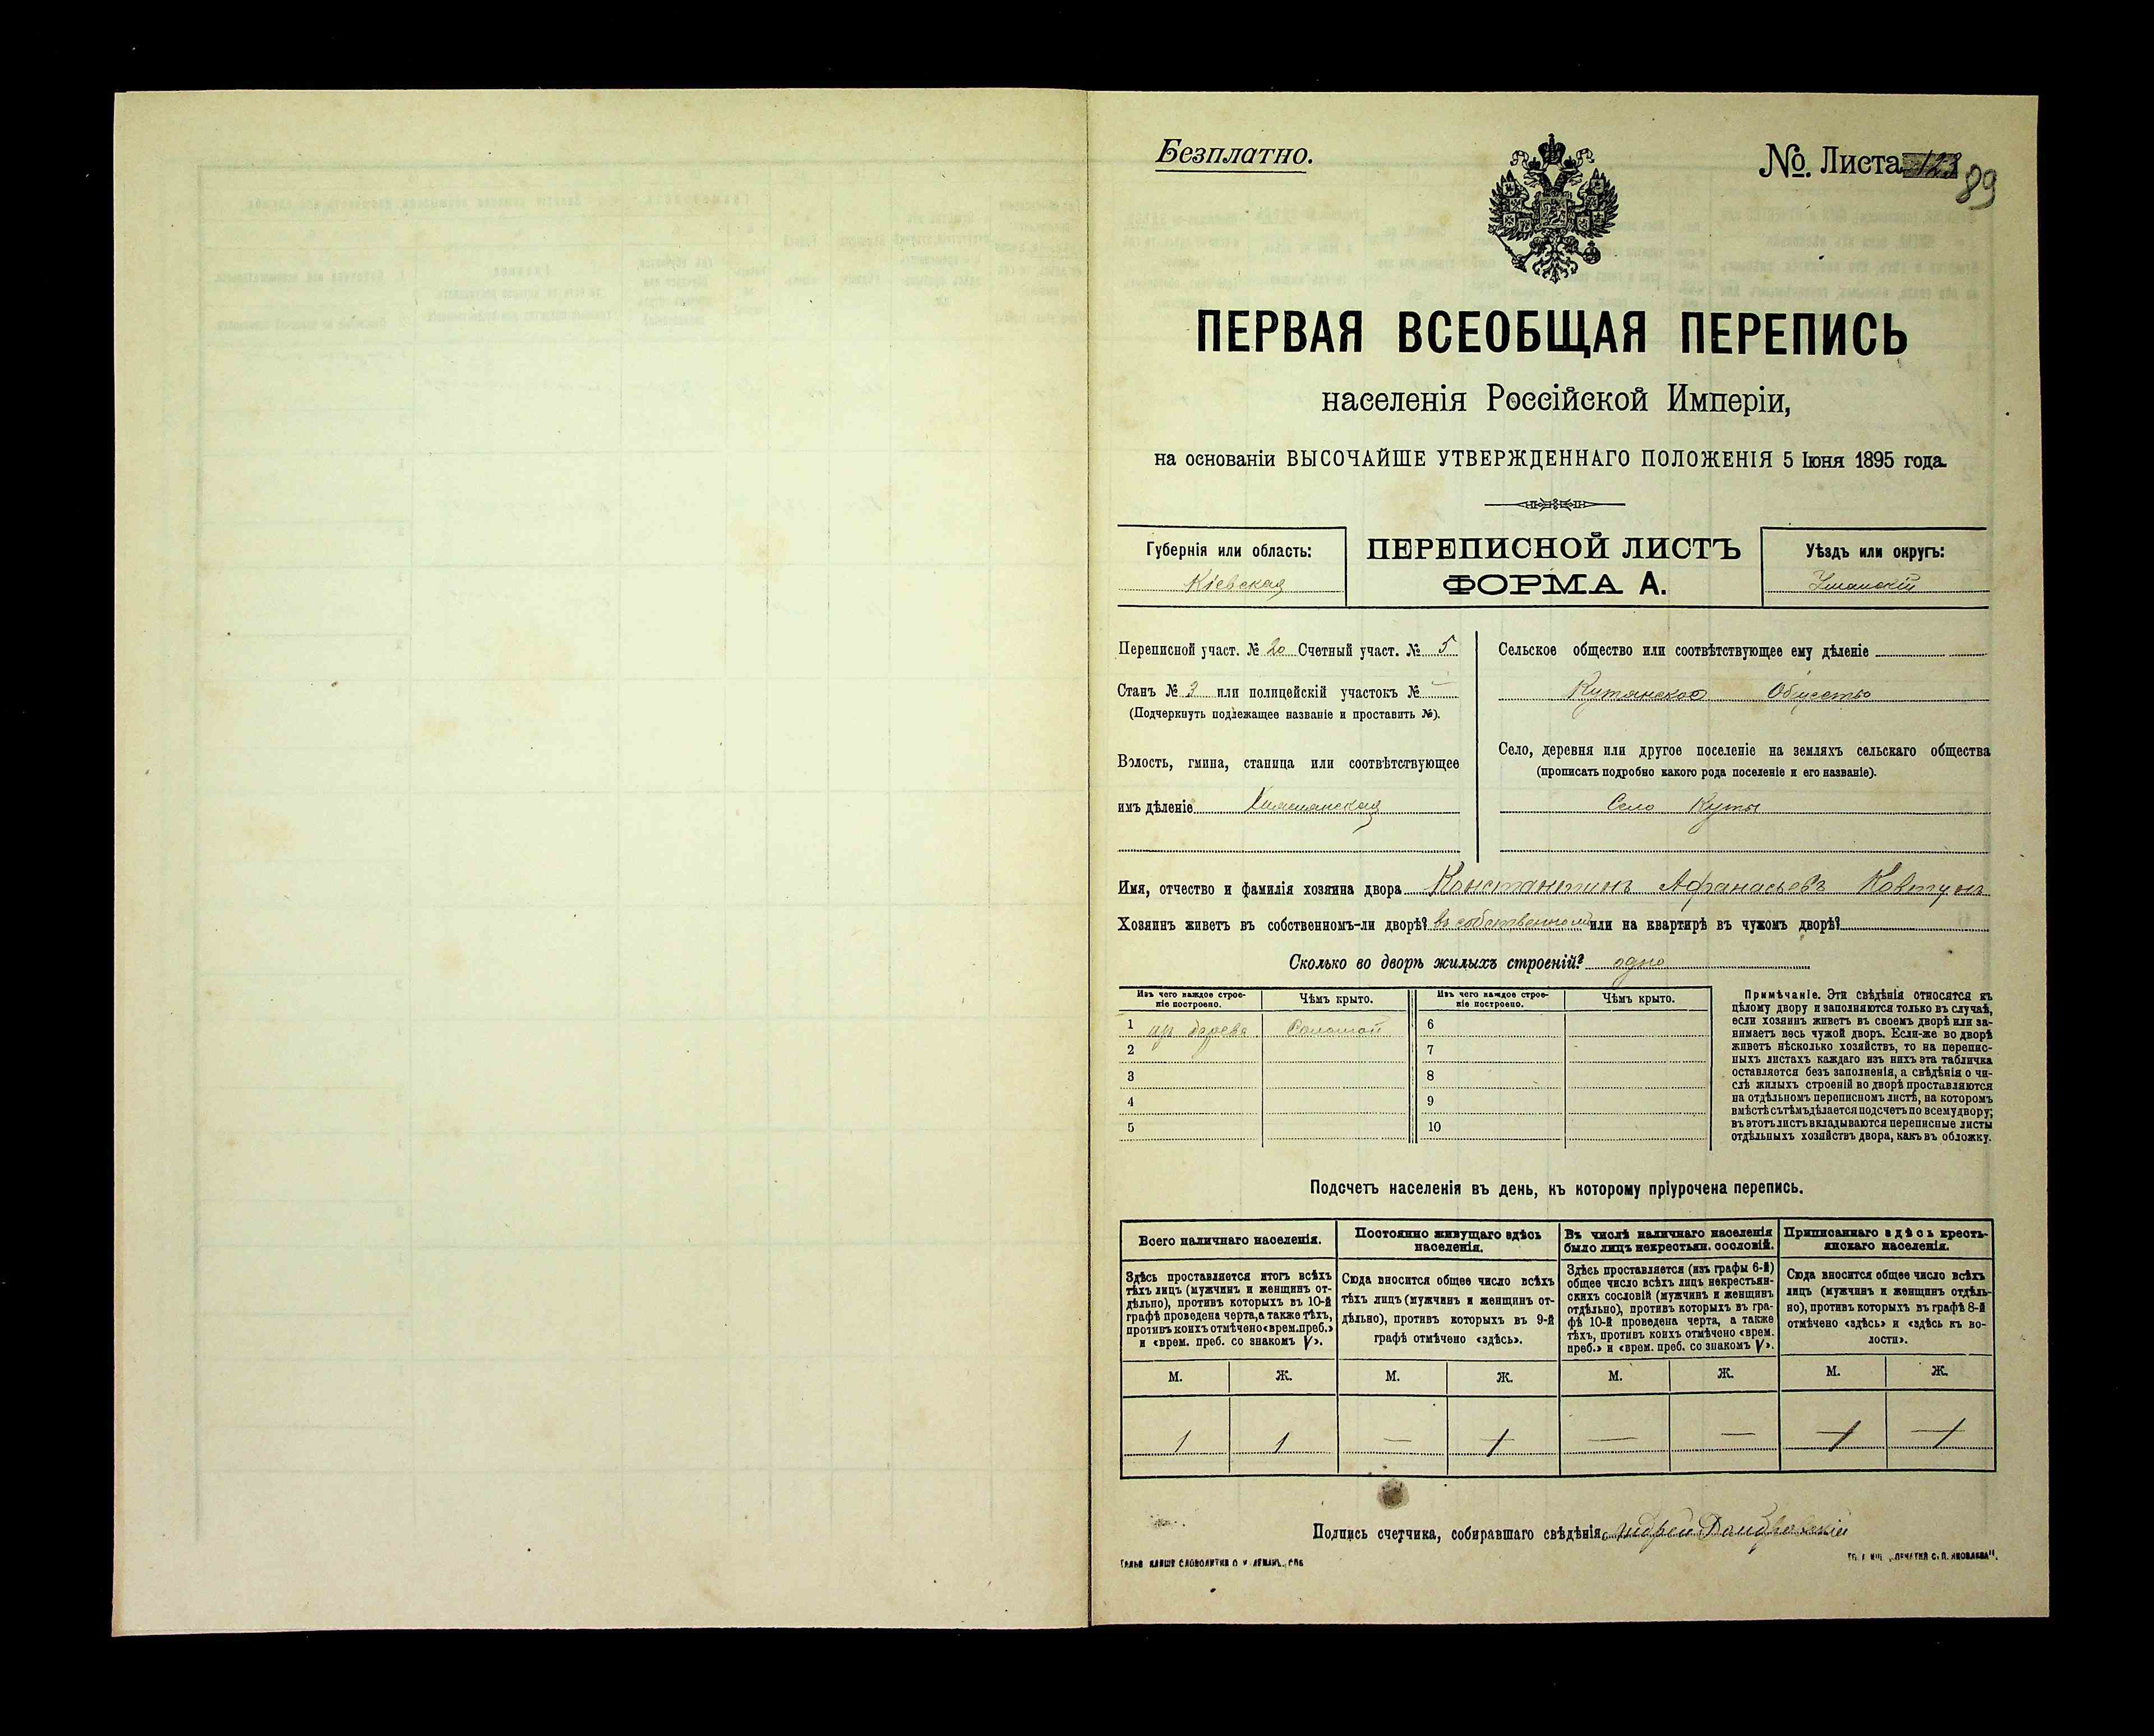 Безплатно.
№. Листа 123 89
ПЕРВАЯ ВСЕОБЩАЯ ПЕРЕПИСЬ
населенія Россійской Имперіи,
на основаніи ВЫСОЧАЙШЕ УТВЕРЖДЕННАГО ПОЛОЖЕНІЯ 5 Іюня 1895 года.
Губернія или область:
Кіевская
ПЕРЕПИСНОЙ ЛИСТЪ
ФОРМА А.
Уѣздъ или округъ:
Уманскій
Переписной участ. № 20 Счетный участ. № 5
Станъ № 3 или полицейскій участокъ №
(Подчеркнуть подлежащее названіе и проставить №).
Волость, гмина, станица или соотвѣтствующее
имъ дѣленіе
Сельское общество или соотвѣтствующее ему дѣленіе
Кутянское Общество
Село, деревня или другое поселеніе на земляхъ сельскаго общества
(прописать подробно какого рода поселеніе и его названіе).
Село Куты
Имя, отчество и фамилія хозяина двора Константинъ Афанасьевъ Ковтунъ
Хозяинъ живетъ въ собственномъ-ли дворѣ? въ собственномъ или на квартирѣ въ чужомъ дворѣ?
Сколько во дворѣ жилыхъ строеній? одно
Изъ чего каждое строе-
ніе построено.
Чѣмъ крыто.
Изъ чего каждое строе-
ніе построено.
Чѣмъ крыто.
1 изъ дерева Соломой 6
2 7
3 8
4 9
5 10
Примѣчаніе. Эти свѣдѣнія относятся къ
цѣлому двору и заполняются только въ случаѣ,
если хозяинъ живетъ въ своемъ дворѣ или за-
нимаетъ весь чужой дворъ. Если-же во дворѣ
живетъ нѣсколько хозяйствъ, то на перепис-
ныхъ листахъ каждаго изъ нихъ эта табличка
оставляется безъ заполненія, а свѣдѣнія о чи-
слѣ жилыхъ строеній во дворѣ проставляются
на отдѣльномъ переписномъ листѣ, на которомъ
вмѣстѣ съ тѣмъ дѣлается подсчетъ по всему двору;
въ этотъ листъ вкладываются переписные листы
отдѣльныхъ хозяйствъ двора, какъ въ обложку.
Подсчетъ населенія въ день, къ которому пріурочена перепись.
Всего наличнаго населенія.
Здѣсь проставляется итогъ всѣхъ
тѣхъ лицъ (мужчинъ и женщинъ от-
дѣльно), противъ которыхъ въ 10-й
графѣ проведена черта, а также тѣхъ,
противъ коихъ отмѣчено «врем. преб.»
и «врем. преб. со знакомъ V».
Постоянно живущаго здѣсь
населенія.
Сюда вносится общее число всѣхъ
тѣхъ лицъ (мужчинъ и женщинъ от-
дѣльно), противъ которыхъ въ 9-й
графѣ отмѣчено «здѣсь».
Въ числѣ наличнаго населенія
было лицъ некрестьян. сословій.
Здѣсь проставляется (изъ графы 6-й)
общее число всѣхъ лицъ некрестьян-
скихъ сословій (мужчинъ и женщинъ
отдѣльно), противъ которыхъ въ гра-
фѣ 10-й проведена черта, а также
тѣхъ, противъ коихъ отмѣчено «врем.
преб.» и «врем. преб. со знакомъ V».
Приписаннаго здѣсь кресть-
янскаго населенія.
Сюда вносится общее число всѣхъ
лицъ (мужчинъ и женщинъ отдѣль-
но), противъ которыхъ въ графѣ 8-й
отмѣчено «здѣсь» и «здѣсь къ во-
лости».
М. Ж. М. Ж. М. Ж. М. Ж.
1 1 — 1 — — 1 1
Подпись счетчика, собиравшаго свѣдѣнія, Андрей Домбровскій